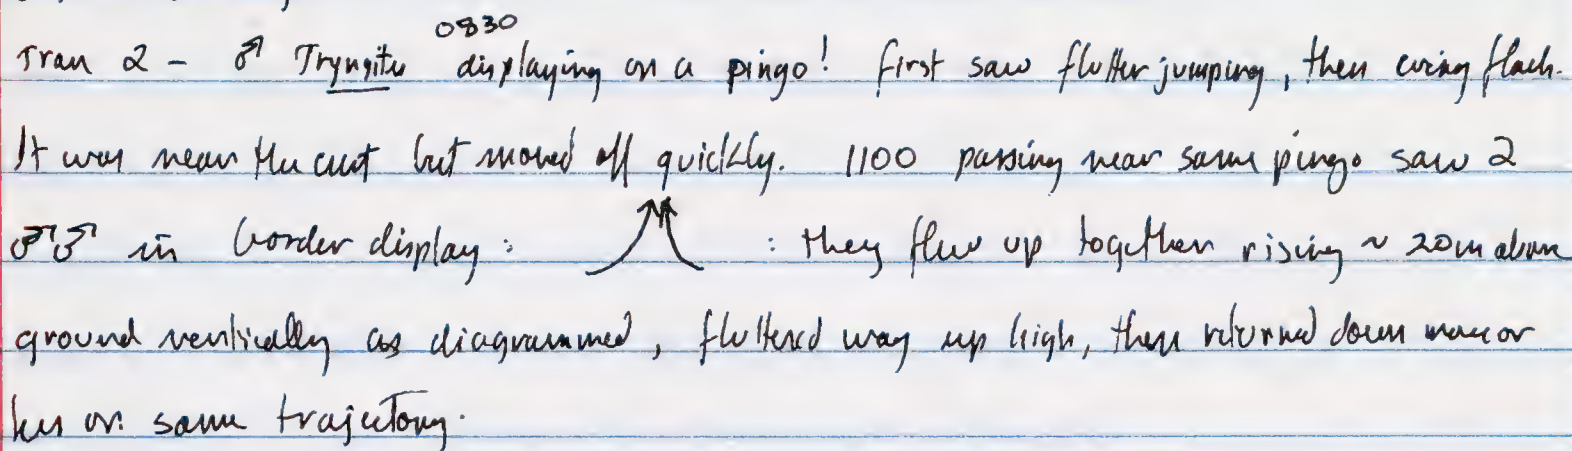 0830
Tran 2 - ♂ Tryngitu displaying on a pingo! First saw flutter jumping, then wing flash.
It was near the crest but moved off quickly. 1100 passing near same pingo saw 2
♂♂ in border display: : they flew up together rising ~ 20m above
ground vertically as diagrammed, fluttered way up high, then returned down more or
less on same trajectory.